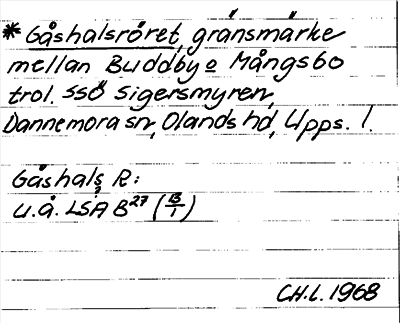 * Gåshalsröret, gränsmärke
mellan Buddby o Mångsbo
trol. SSÖ Sigersmyren,
Dannemora sn, Olands hd, Upps. l.
Gåshals R:
u.å. LSA B27 (B/1)
CH.L. 1968